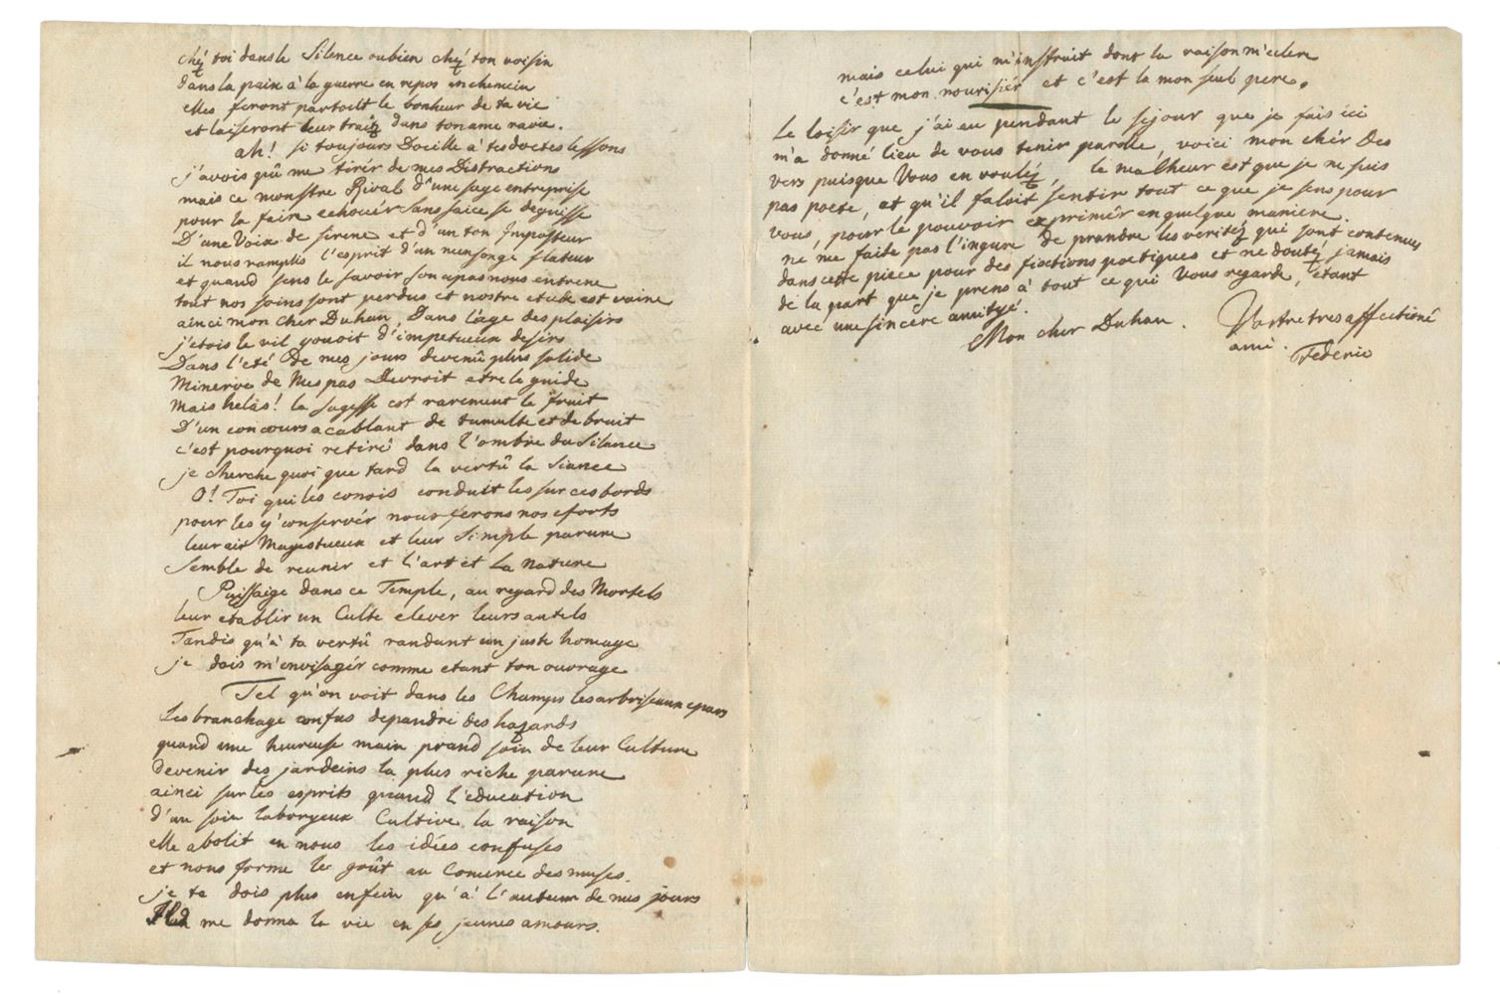 chéz toi dans le Silence oubien chéz ton voisin
dans la paix à la guerre en repos en chemein
elles feront partoutt le bonheur de ta vie
et laiseront leur traitz dans ton ame ravie.
ah! si toujours Docille a tes doctes lessons
j'avois pû me tirér de mes Distractions
mais ce monstre Rival d'une sage entreprise
pour la faire echouér sans saice se deguisse
D'une Voix de sirene et d'un ton Imposteur
il nous ramplis l'esprit d'un mensonge flateur
et quand sens le savoir son apas nous entrene
tout nos soins sont perdus et nostre etude est vaine
ainci mon cher Duhan, Dans l'age des plaisirs
j'etois le vil gouoit d'impetueux desirs
Dans l'eté De mes jours devenû plus solide
Minerve de Mes pas Devroit etre le guide
Mais helàs! la sagesse est rarement le fruit
D'un concours acablant de tumulte et de bruit
c'est pourquoi retiré dans l'ombre du Silance
je cherche quoi que tard la vertû la Siance
O! Toi qui les conois conduit les sur ces bords
pour les y conservér nous ferons nos eforts
leur air Magestueux et leur Simple parure
Semble de reunir et l'art et la Nature
Puissaige dans ce Temple, au regard des Mortels
leur etablir un Culte elever leurs autels
Tandis qu'à ta vertû randant un juste homage
je dois m'envisagér comme etant ton ouvrage
Tel qu'on voit dans les Champs les arbriseaux epars
Les branchage confus depandre des hazards
quand une heureuse main prand soin de leur Culture
devenir des jardeins la plus riche parure
ainci sur les esprits quand l'education
d'un soin laboryeux Cultive la raison
elle abolit en nous les idées confuses
et nous forme le goût au Comerce des muses.
je te dois plus enfein qu'à l'auteur de mes jours
Il me donna la vie en ses jeunes amours.
mais celui qui m'instruit dont la raison m'eclere
c'est mon nourisiér et c'est la mon seul pere.
Le loisir que j'ai eu pendant le sejour que je fais ici
m'a donné lieu de vous tenir parole, voici mon chér Des
vers puisque Vous en vouléz, le malheur est que je ne suis
pas poete, et qu'il faloit sentir tout ce que je sens pour
vous, pour le pouvoir exprimér en quelque maniere.
ne me faite pas l'ingure de prandre les veritéz qui sont contenues
dans cette piece pour des fixtions poetiques et ne doutéz jamais
de la part que je prens à tout ce qui Vous regarde, etant
avec une sincere amityé.
Mon cher Duhan. Vostre tres affectioné
ami. Federic